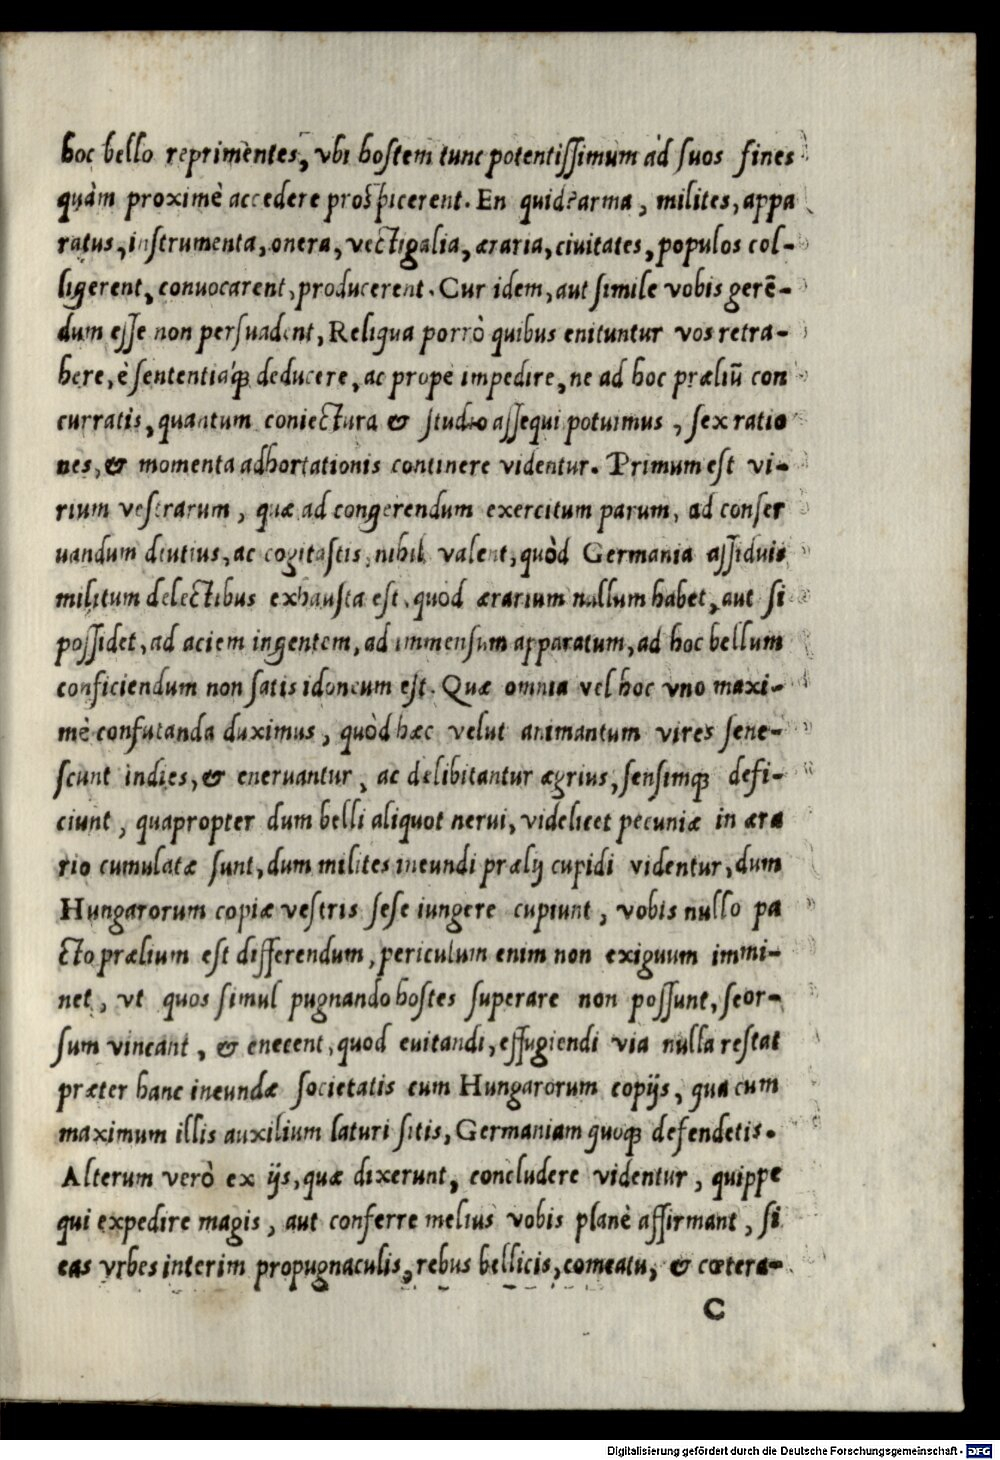 hoc bello reprimentes, vbi hostem tunc potentissimum ad suos fines
quàm proximè accedere prospicerent. En quidẽ arma, milites, appa
ratus, instrumenta, onera, vectigalia, æraria, ciuitates, populos col-
ligerent, conuocarent, producerent. Cur idem, aut simile vobis gerẽ-
dum esse non persuadent, Reliqua porrò quibus enituntur vos retra-
here, è sententiáq; deducere, ac prope impedire, ne ad hoc præliũ con
curratis, quantum coniectura & studio assequi potuimus, sex ratio
nes, & momenta adhortationis continere videntur. Primum est vi-
rium vestrarum, quæ ad congerendum exercitum parum, ad conser
uandum diutius, ac cogitastis, nihil valent, quòd Germania assiduis
militum delectibus exhausta est, quod ærarium nullum habet, aut si
possidet, ad aciem ingentem, ad immensum apparatum, ad hoc bellum
conficiendum non satis idoneum est. Quæ omnia vel hoc vno maxi-
mè confutanda duximus, quòd hæc velut animantum vires sene-
scunt indies, & eneruantur, ac delibitantur ægrius, sensimq; defi-
ciunt, quapropter dum belli aliquot nerui, videlicet pecuniæ in æra
rio cumulatæ sunt, dum milites ineundi prælij cupidi videntur, dum
Hungarorum copiæ vestris sese iungere cupiunt, vobis nullo pa
cto prælium est differendum, periculum enim non exiguum immi-
net, vt quos simul pugnando hostes superare non possunt, seor-
sum vincant, & enecent, quod euitandi, effugiendi via nulla restat
præter hanc ineundæ societatis cum Hungarorum copijs, qua cum
maximum illis auxilium laturi sitis, Germaniam quoq; defendetis.
Alterum verò ex ijs, quæ dixerunt, concludere videntur, quippe
qui expedire magis, aut conferre melius vobis planè affirmant, si
eas vrbes interim propugnaculis, rebus bellicis, comeatu, & cœtera-
C
Digitalisierung gefördert durch die Deutsche Forschungsgemeinschaft - DFG